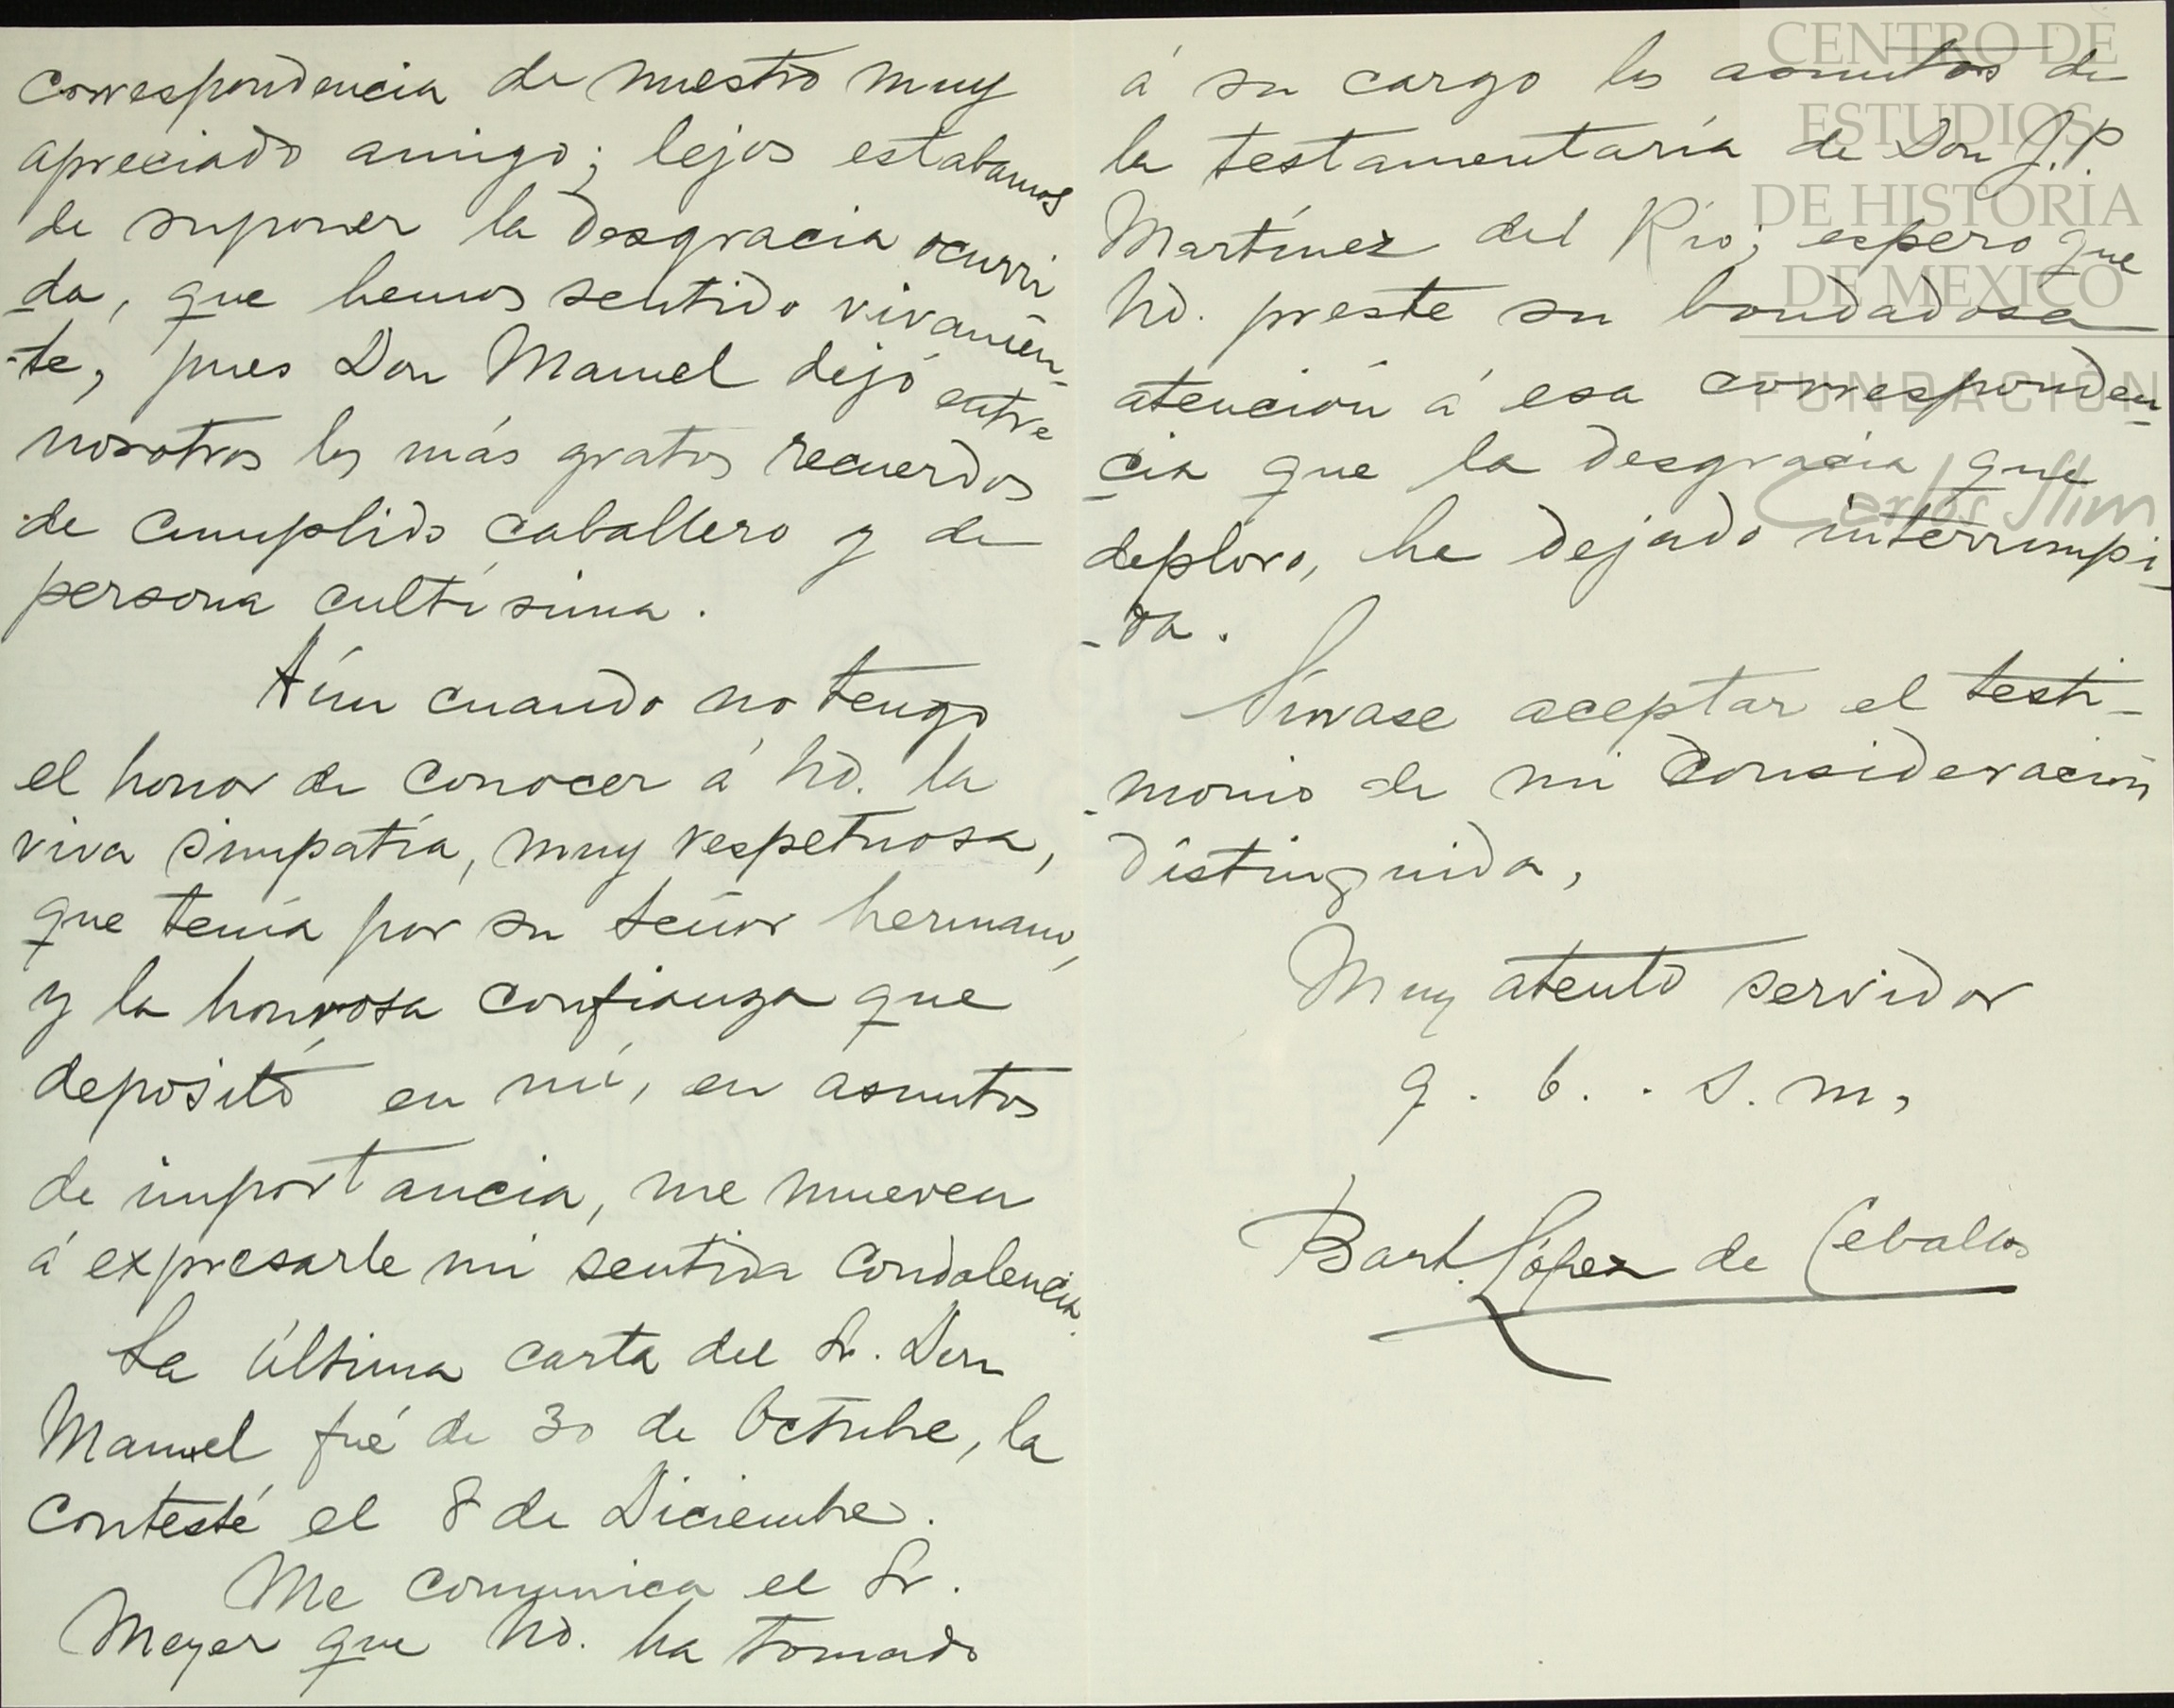 correspondencia de nuestro muy
apreciado amigo; lejos estabamos
de suponer la desgracia ocurri
da, que hemos sentido vivamen-
-te, pues Don Manuel dejó entre
nosotros los más gratos recuerdos
de cumplido caballero y de
persona cultísima.
Aún cuando no tengo
el honor de conocer á Vd. la
viva simpatía, muy respetuosa,
que tenía por su señor hermano,
y la honrosa confianza que
depositó en mí, en asuntos
de importancia, me mueven
á expresarle mi sentida condolencia.
La última carta del Sr. Don
Manuel fué de 30 de Octubre, la
contesté el 8 de Diciembre.
Me comunica el Sr.
Meyer que Vd. ha tomado
á su cargo los asuntos de
la testamentaría de Don J.P.
Martínez del Río; espero que
Vd. preste su bondadosa
atención á esa corresponden-
cia que la desgracia que
deploro, ha dejado interrumpi-
-da.
Sírvase aceptar el testi-
-monio de mi consideración
distinguida,
Muy atento servidor
q. b. . s. m,
Bart. López de Ceballos
CENTRO DE
ESTUDIOS
DE HISTORIA
DE MEXICO
FUNDACIÓN
Carlos Slim